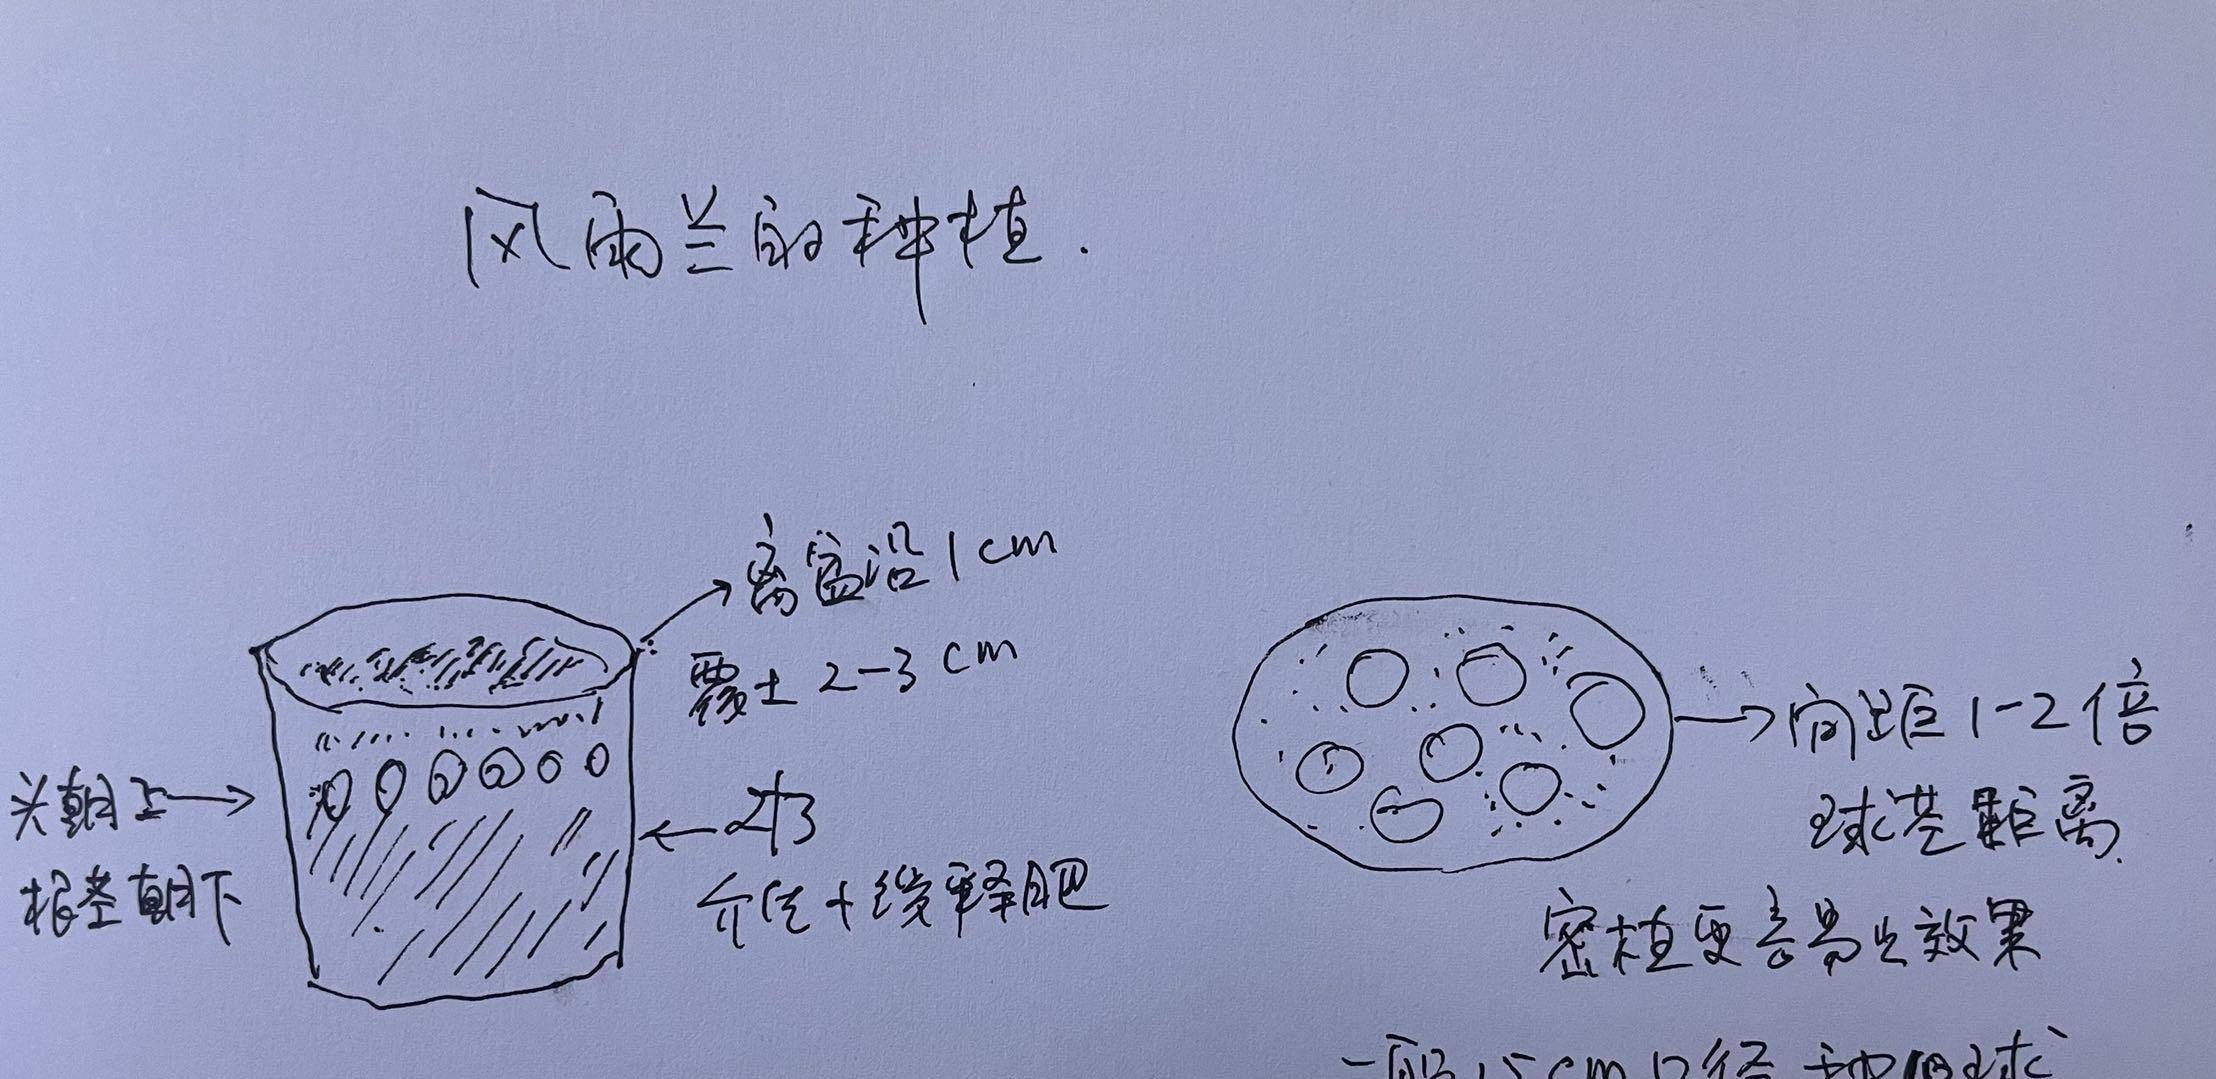 风雨兰的种植.
离盆沿1cm
覆土 2-3cm
头朝上
根茎朝下
2/3
介质+缓释肥
间距1-2倍
球茎距离.
密植更容易出效果
一般15cm口径种10球